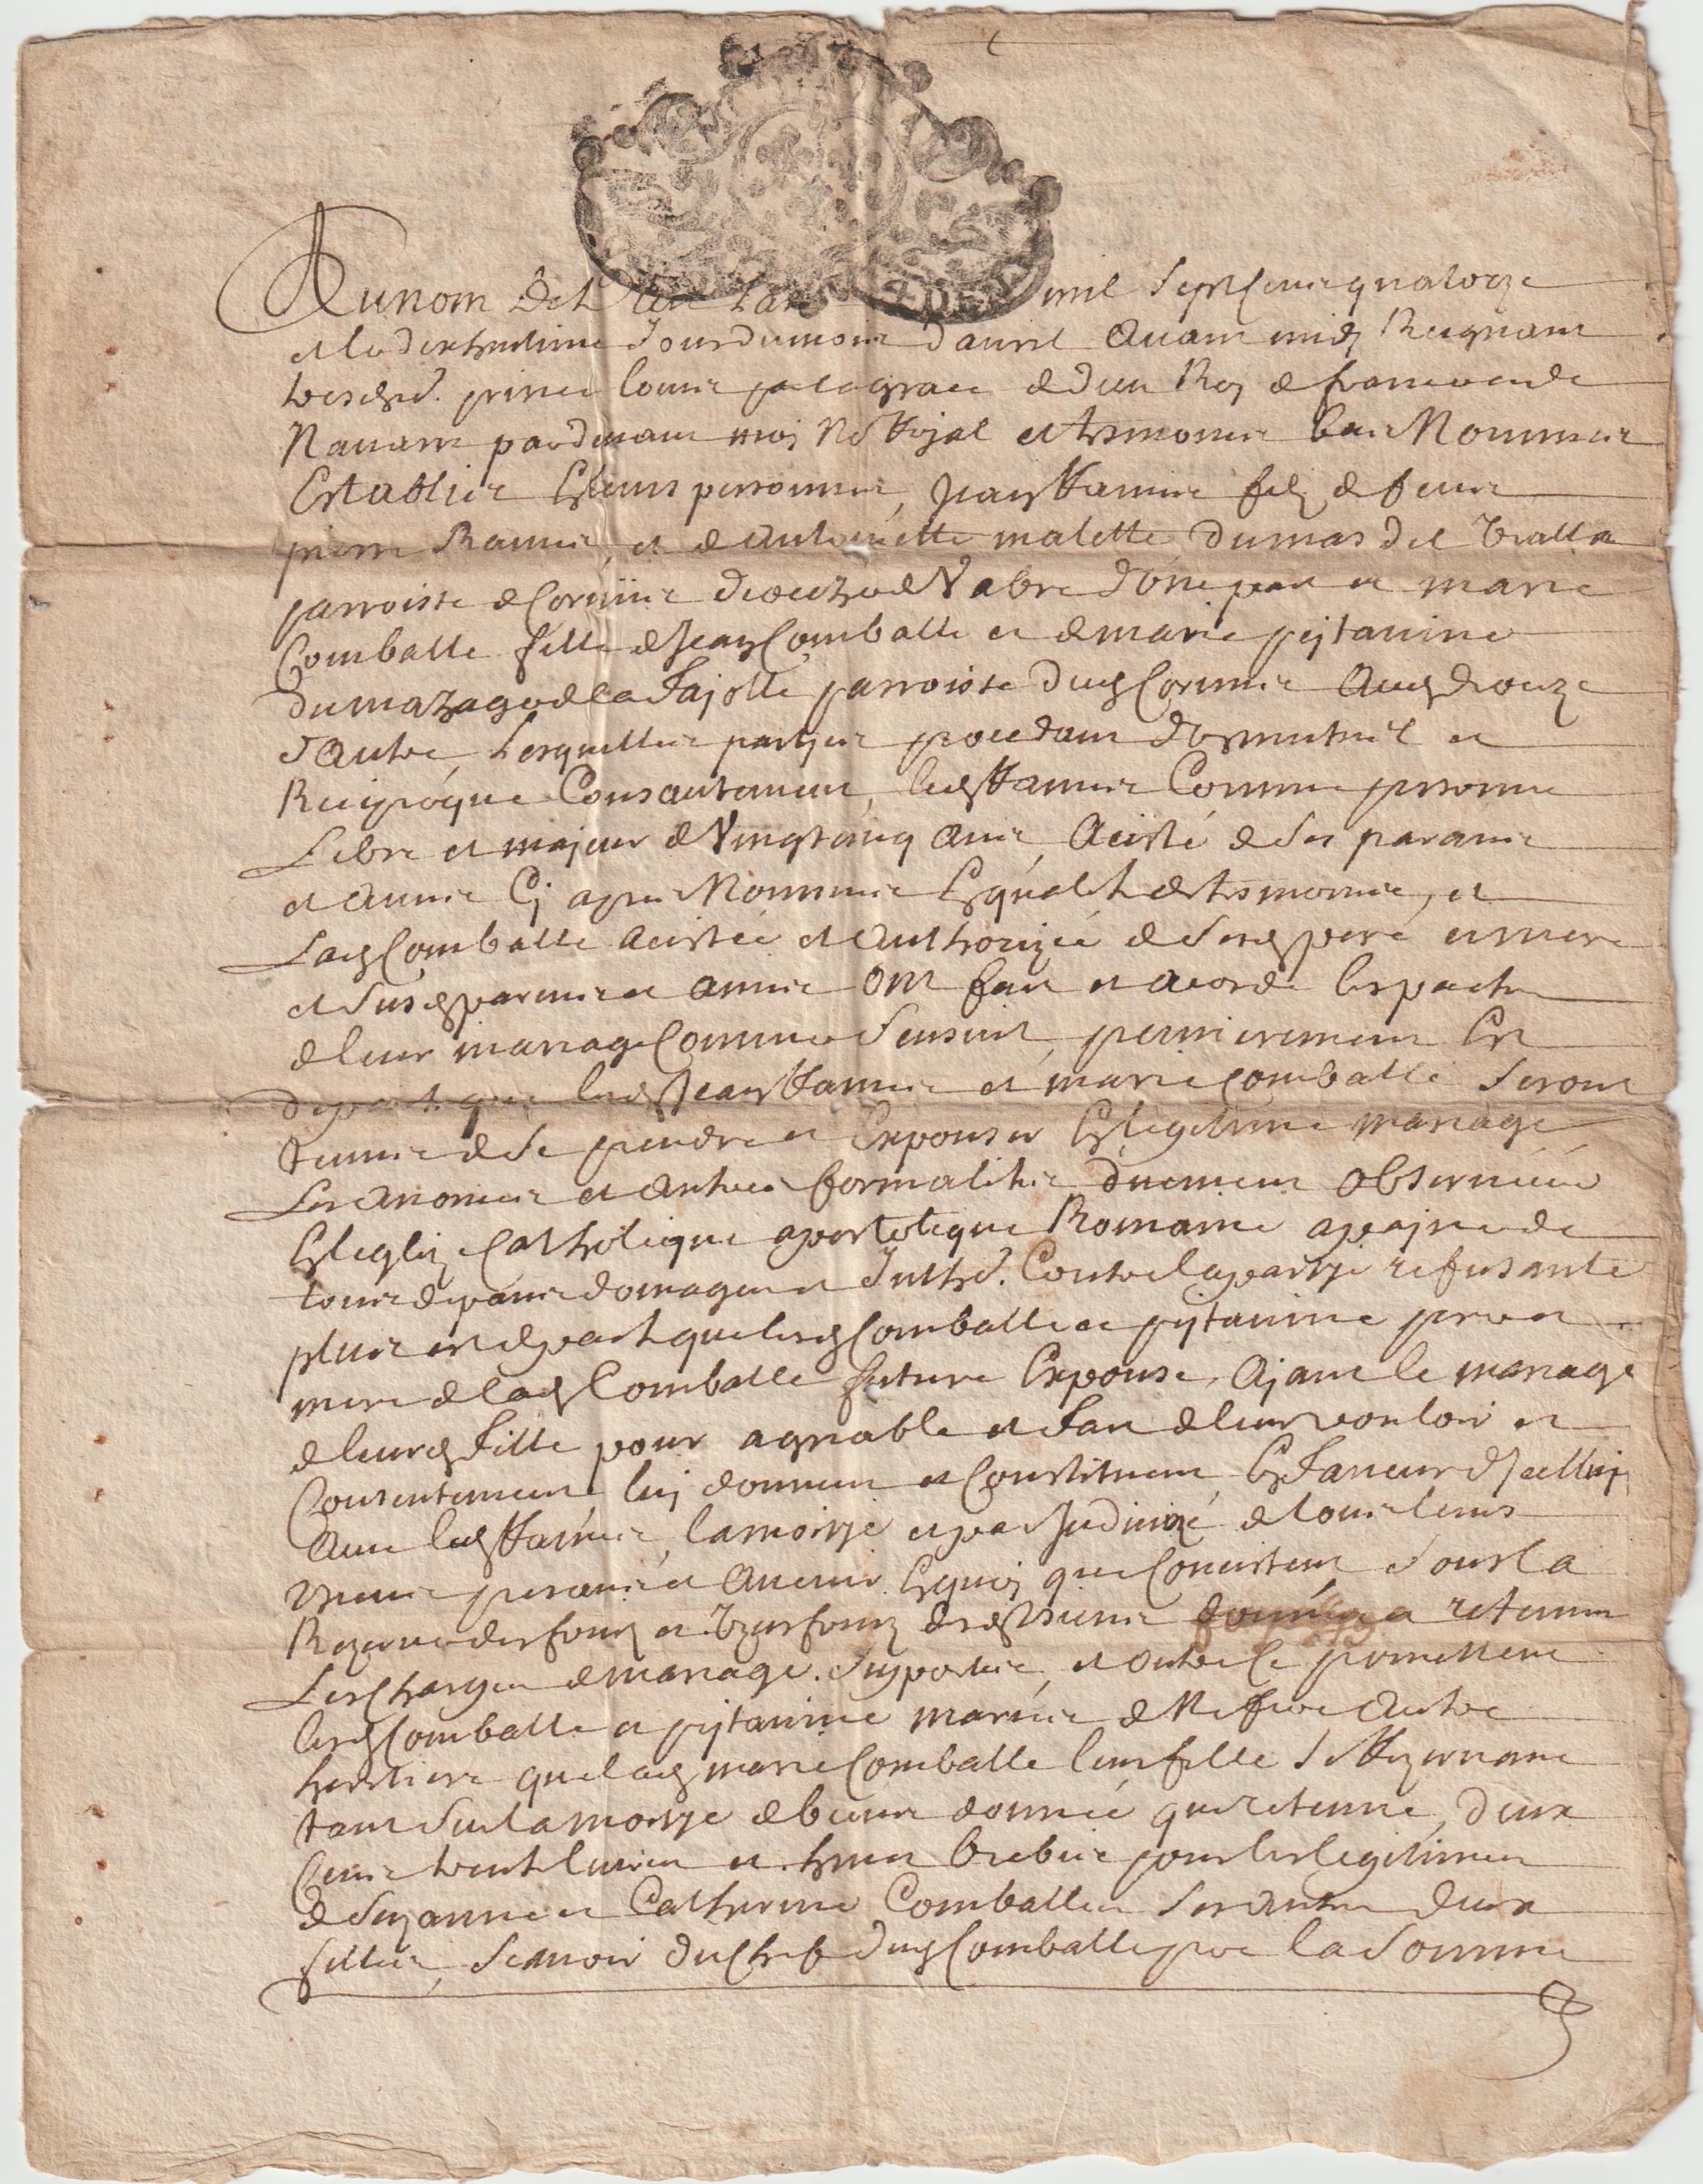 Au nom de Dieu Lan mil Sept Cens quatorze
et le dixhuitieme Jour du mois davril avant midy Regnant
tres chr. prince Louis par la grace de dieu Roy de france et de
Navarre par devant moy No Royal et tesmoins bas Nommes
Establis En leurs personnes, Jean Ramie filz de feus
pierre Ramie, et de Antoinette malette du mas del
parroisse de Cornus dioceze de Vabre dune part et marie
Comballe fille de Jean Comballe et de marie peytavine
du mazage de la fajolle parroisse dud Cornus Aud dioceze
dautre, Lesquelles parties procedant de mutuel et
Reciproque Consantemant, led Ramie Comme personne
Libre et majeur de Vingt cinq ans, Acisté de ses parans
et amis Cy apres Nommes En qualité de tesmoins, et
Lad Comballe acistée et Authorizée de sesd pere et mere
et susd parens et amis ont fait et acordé les pactes
de leur mariage Comme sensuit, premierement Est
de pacte que lesd Jean Ramie et marie Comballe seront
tenus de se prendre et Expouser En legitime mariage
Les anonces et autres formalités duement observées
En leglize Catholique apostolique Romaine a peine de
tous depans domages et Inthr. Contre la partye refusante
plus est de pacte que lesd Comballe et peytavine pere et
mere de lad Comballe future Expouse, Ajant le mariage
de leurd fille pour agreable et fait de leur vouloir et
Consentement, luy donnent et Constituent En faveur dicelluy
Avec led Ramie, la moitye et par Indivizé de tous leurs
biens presens et Avenir En quoy que Concistent Sous la
Rezerve des fruiz et Uzufruiz desd biens a retenir
Les charges de mariage supportes, et outre Ce promettent
lesd Comballe et peytavine maries de Ne faire Autre
heritiere que lad marie Comballe leur fille se Rezervant
tant sur la moitye de biens donnée que retenue, deux
Cens trente livres et huit brebis pour les legitimes
de Suzanne et Catherine Comballes ses autres deux
filles, Scavoir du Chef dud Comballe pere la somme